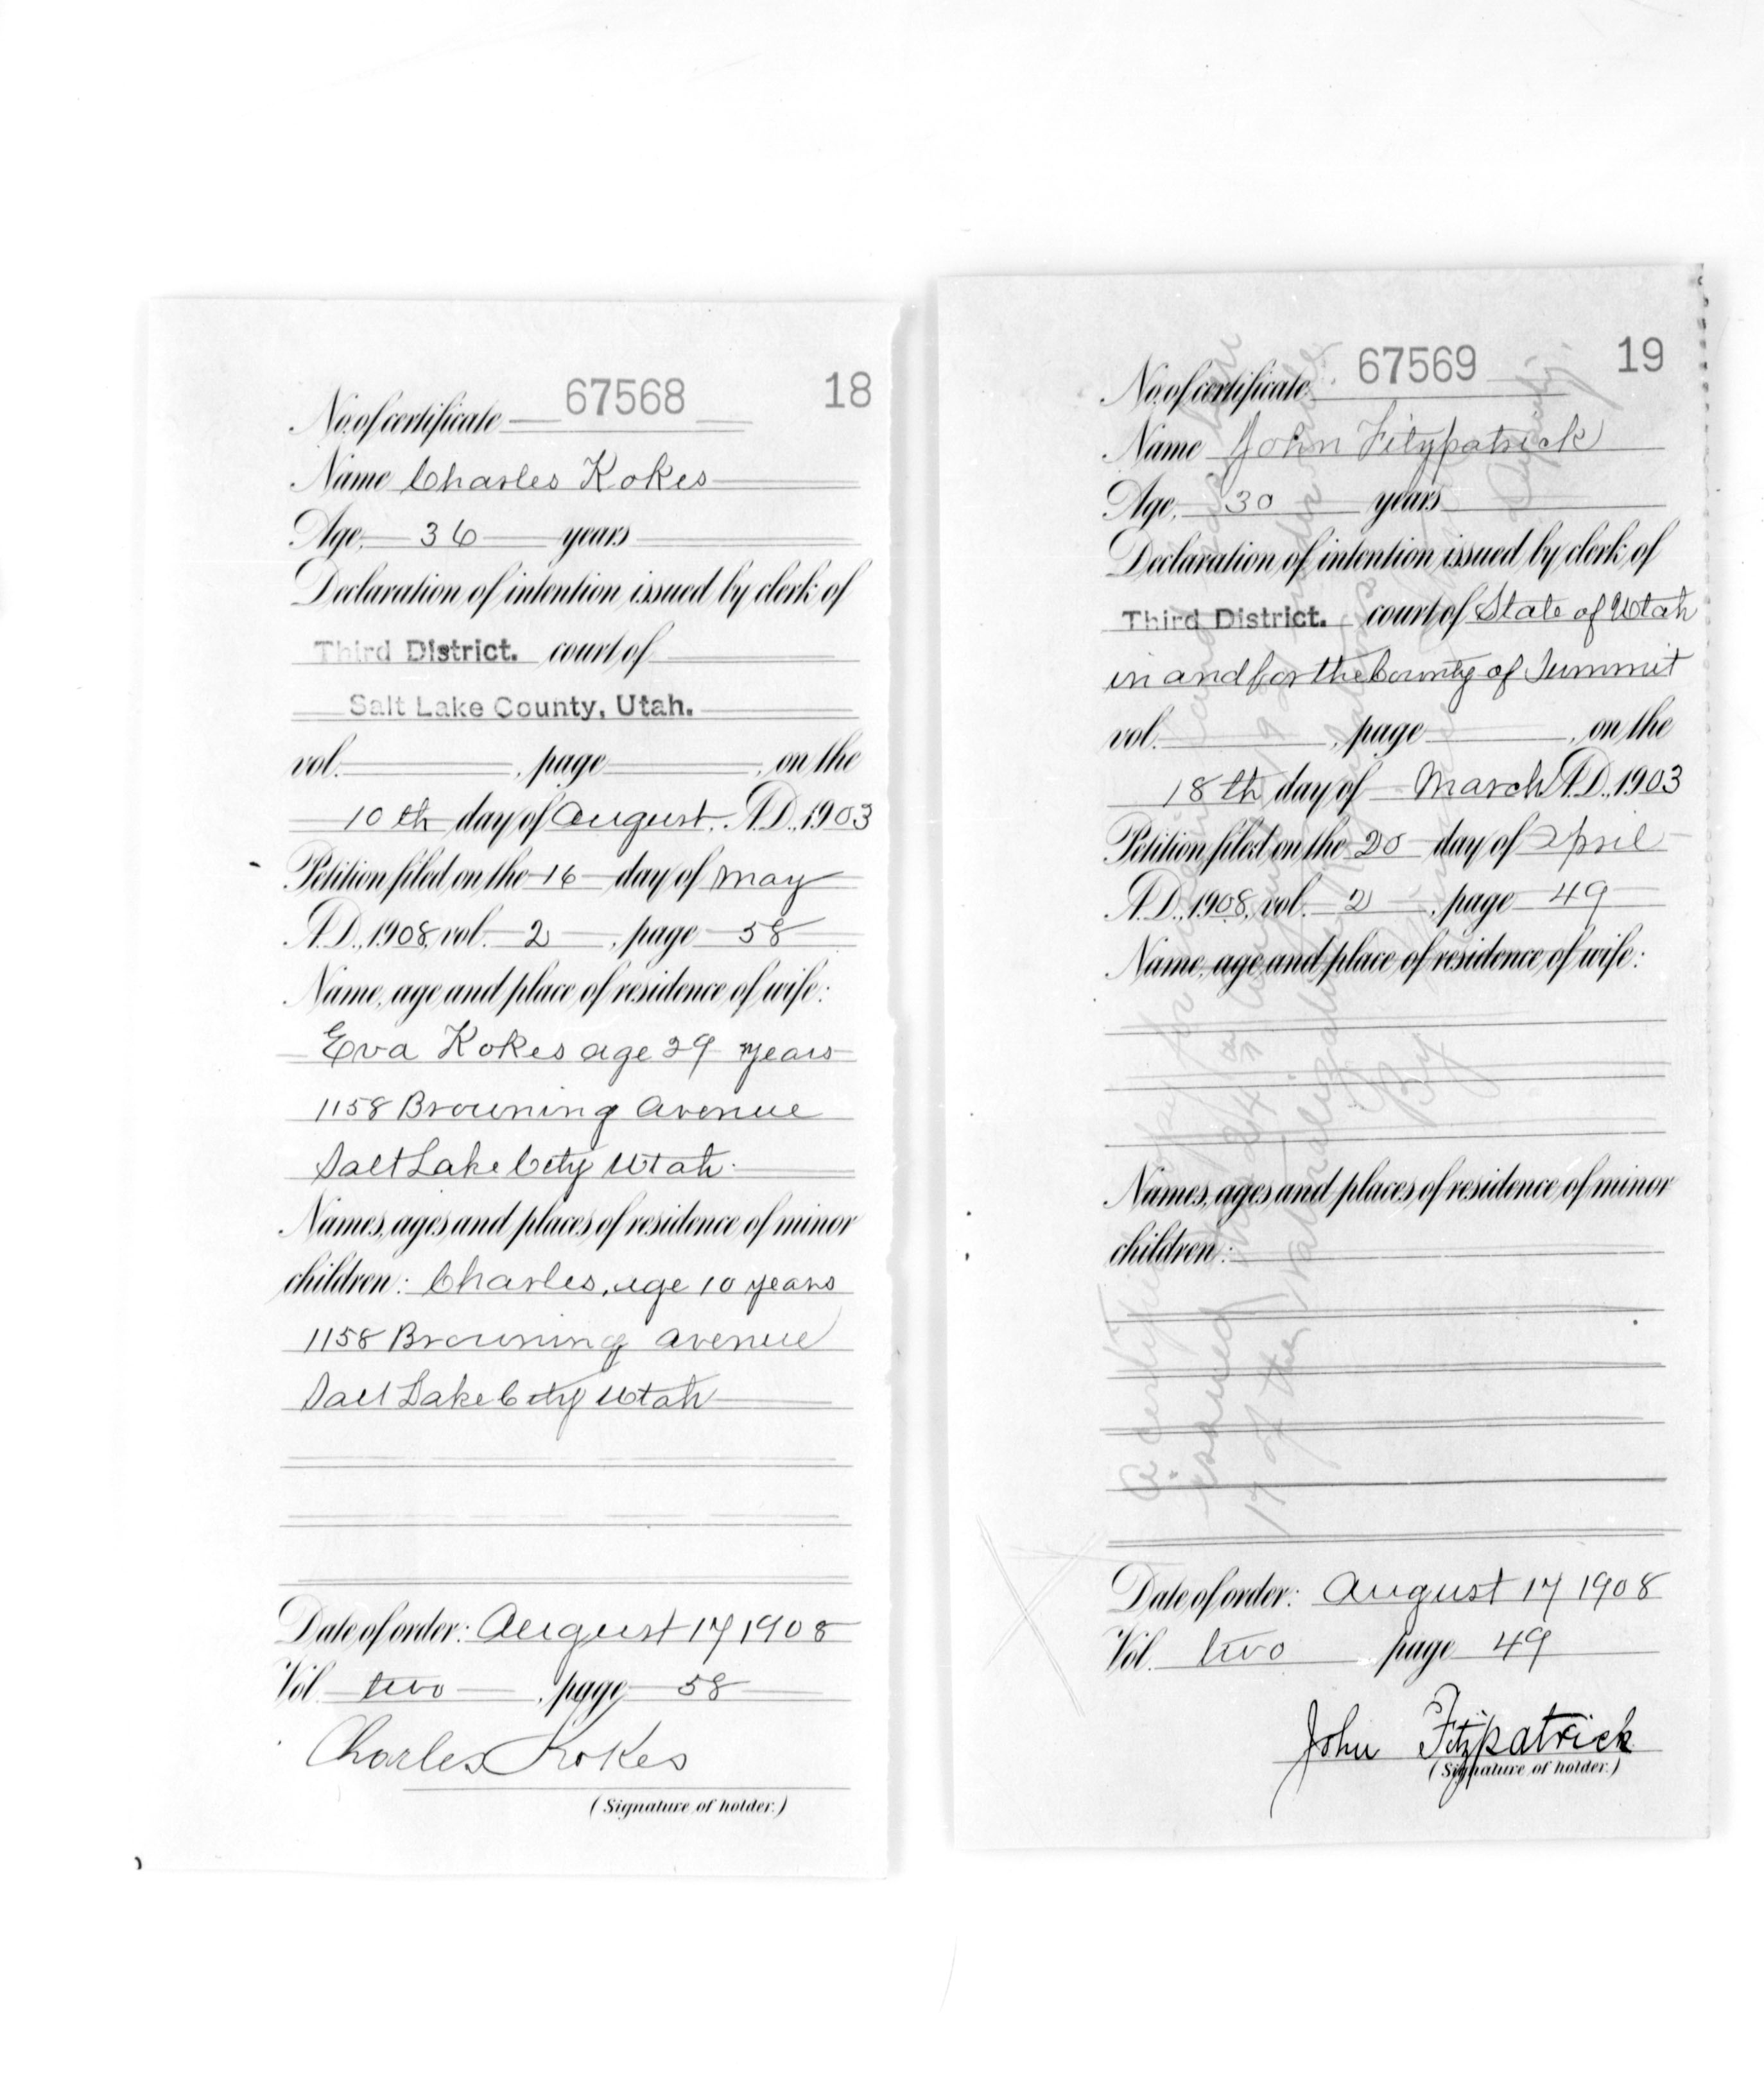 67568 18
No. of certificate
Name Charles Kokes
Age, 36 years
Declaration of intention issued by clerk of
Third District. court of
Salt Lake County, Utah.
vol. , page , on the
10th day of August, A.D., 1903
Petition filed on the 16 day of May
A.D., 1908, vol. 2 , page 58
Name, age and place of residence of wife:
Eva Kokes age 29 years
1158 Browning Avenue
Salt Lake City Utah.
Names, ages and places of residence of minor
children: Charles, age 10 years
1158 Browning Avenue
Salt Lake City Utah
Date of order: August 17 1908
Vol. two , page 58
Charles Kokes
(Signature of holder.)
67569 19
No. of certificate
Name John Fitzpatrick
Age, 30 years
Declaration of intention issued by clerk of
Third District. court of State of Utah
in and for the County of Summit
vol. , page , on the
18th day of March A.D., 1903
Petition filed on the 20 day of April
A.D., 1908, vol. 2 , page 49
Name, age and place of residence of wife:
Names, ages and places of residence of minor
children:
Date of order: August 17 1908
Vol. two page 49
John Fitzpatrick
(Signature of holder.)
A certified copy
issued
17 of the Naturalization
By
Deputy.